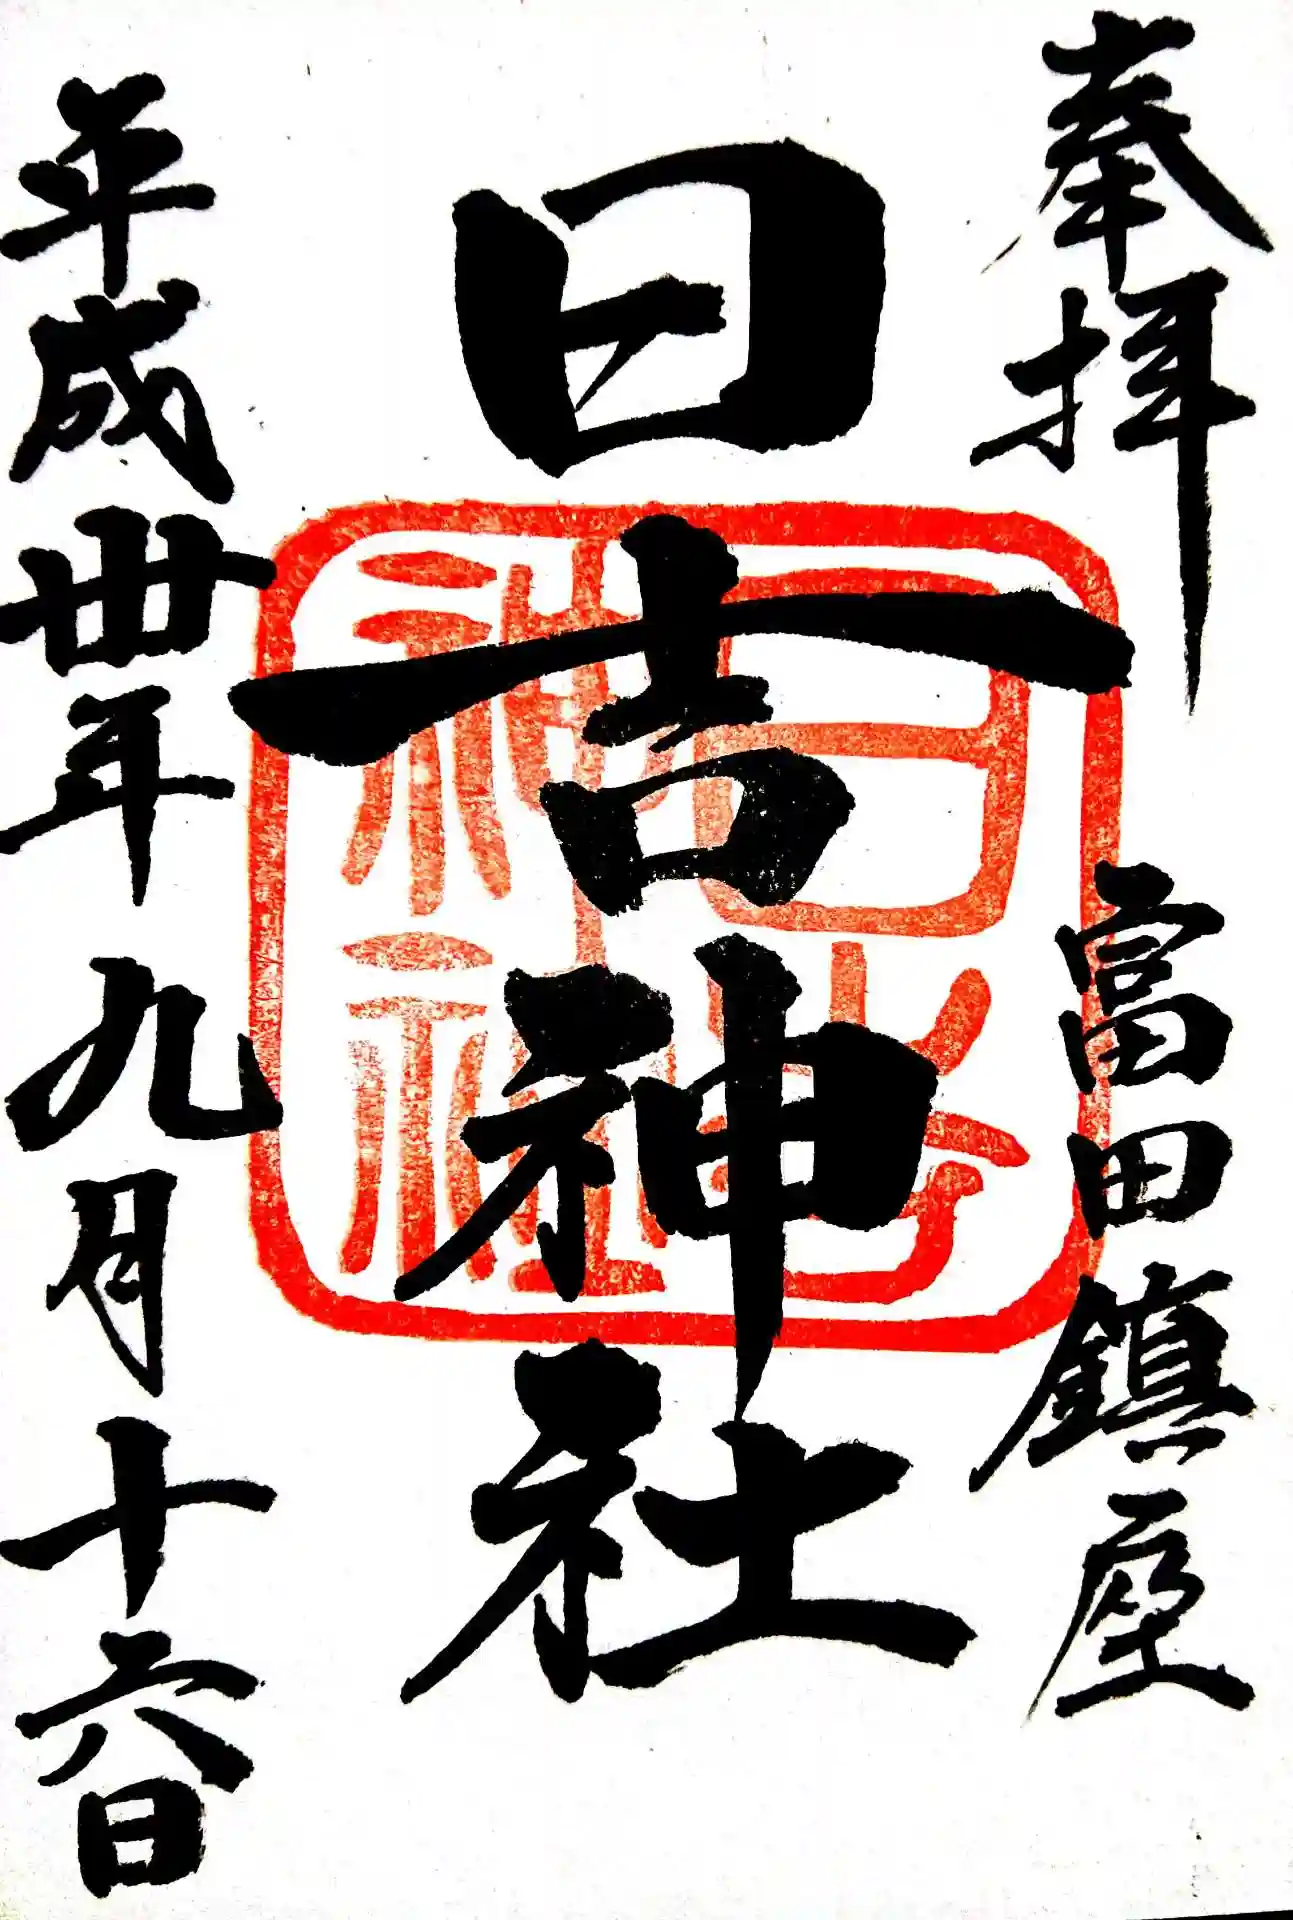 奉拝
富田鎮座
日吉神社
日吉神社
平成卅年九月十六日